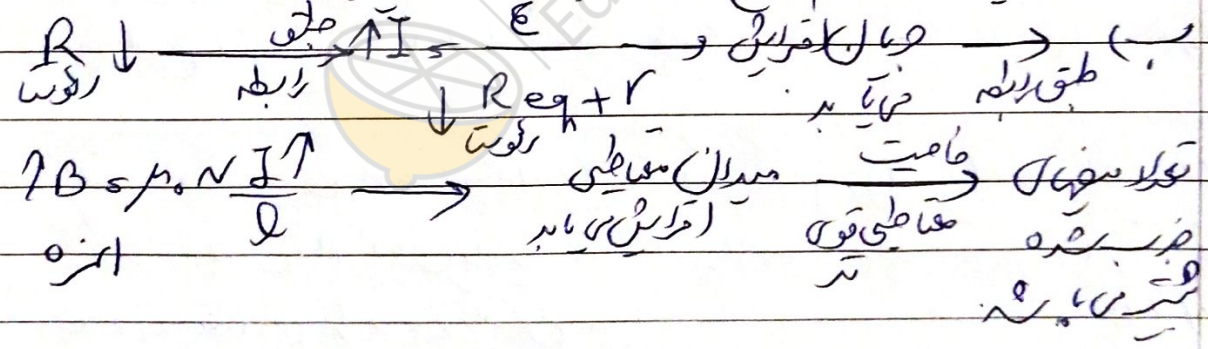 R رئوستا ↓ طبق رابطه → ↑I = ε / ↓Req + r رئوستا → جریان افزایش می یابد → (ب
طبق رابطه
↑B = μ₀ N I↑ / l → میدان مغناطیسی افزایش می یابد → خاصیت مغناطیسی قوی تر تعداد میخهای
جذب شده
بیشتر می باشد.